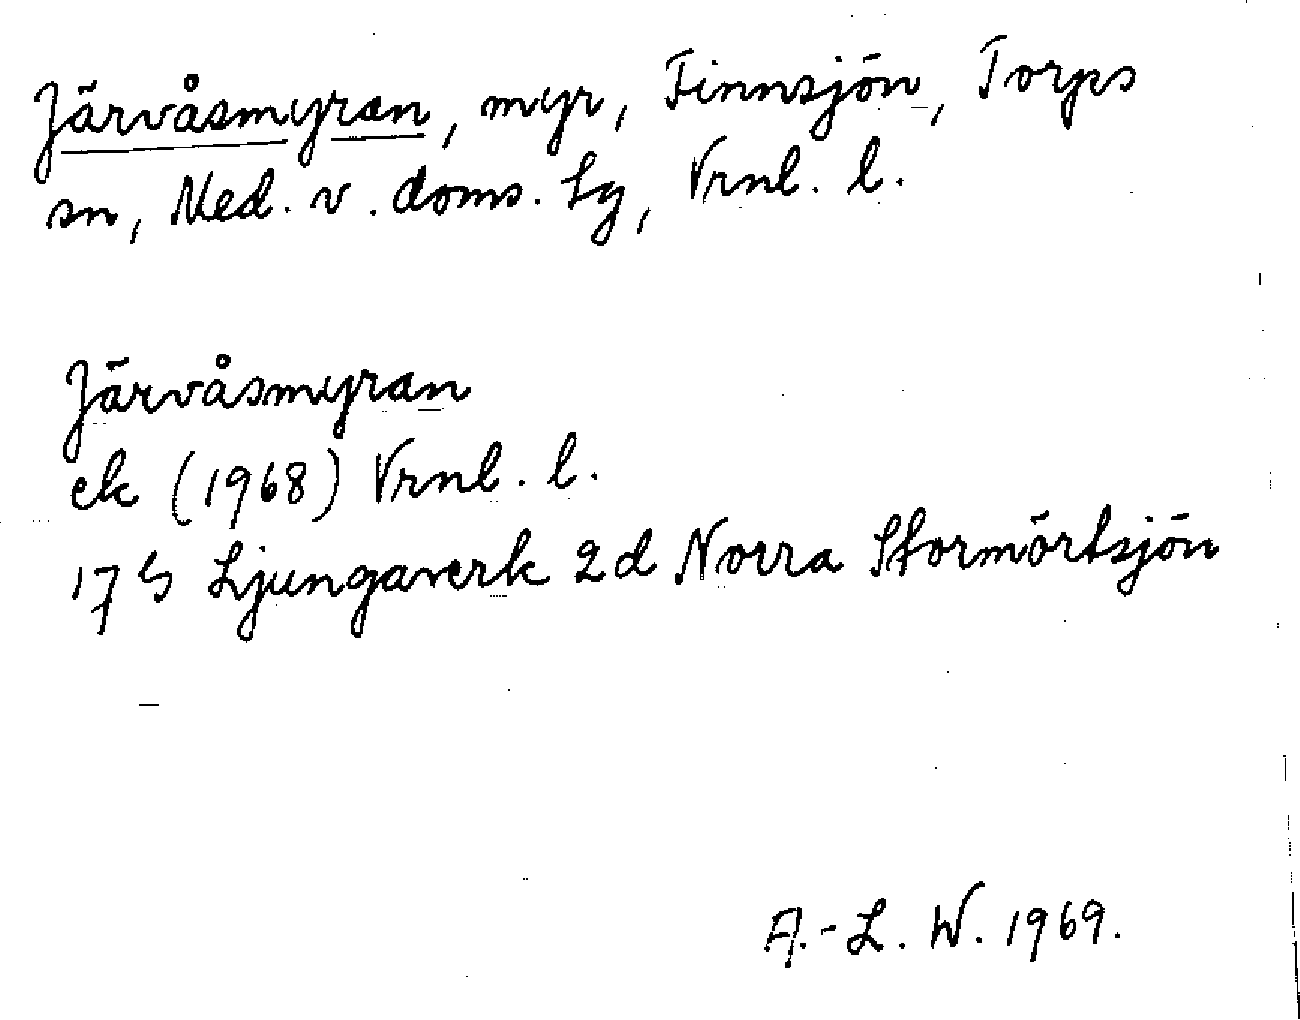 Järvåsmyran, myr, Finnsjön, Torps
sn, Med. v. doms. Lg, Vrnl. l.
Järvåsmyran
ek (1968) Vrnl. l.
17 G Ljungaverk 2d Norra Stormörtsjön
A.-L. W. 1969.